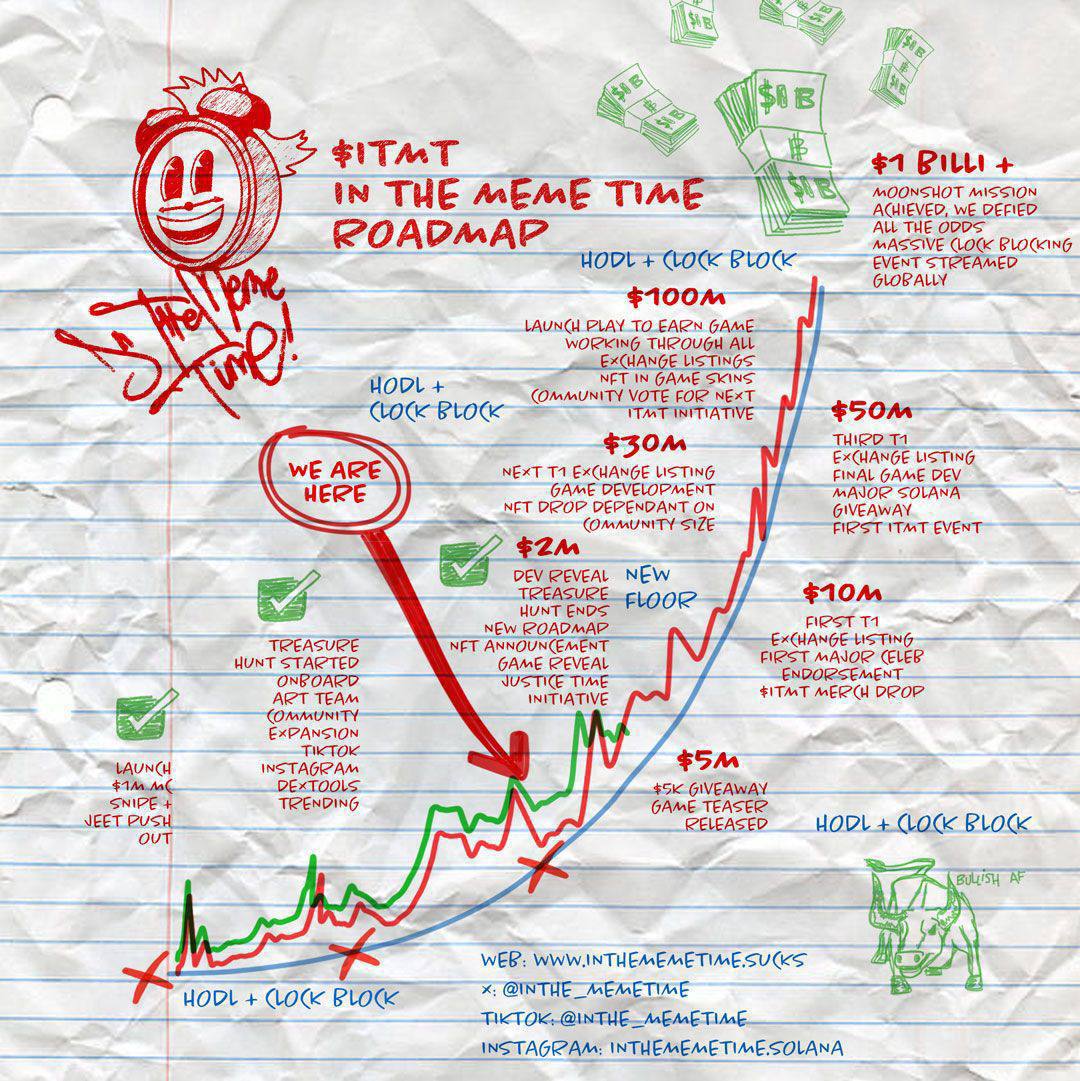 $ITMT
IN THE MEME TIME
ROADMAP
In The Meme
Time!
$1B
฿
$1B
$1B
฿
$1B
$1B
฿
$1B
$1 BILLI +
MOONSHOT MISSION
ACHIEVED, WE DEFIED
ALL THE ODDS
MASSIVE CLOCK BLOCKING
EVENT STREAMED
GLOBALLY
HODL + CLOCK BLOCK
$100M
LAUNCH PLAY TO EARN GAME
WORKING THROUGH ALL
EXCHANGE LISTINGS
NFT IN GAME SKINS
COMMUNITY VOTE FOR NEXT
ITMT INITIATIVE
HODL +
CLOCK BLOCK
$50M
THIRD T1
EXCHANGE LISTING
FINAL GAME DEV
MAJOR SOLANA
GIVEAWAY
FIRST ITMT EVENT
$30M
NEXT T1 EXCHANGE LISTING
GAME DEVELOPMENT
NFT DROP DEPENDANT ON
COMMUNITY SIZE
WE ARE
HERE
$2M
DEV REVEAL
TREASURE
HUNT ENDS
NEW ROADMAP
NFT ANNOUNCEMENT
GAME REVEAL
JUSTICE TIME
INITIATIVE
NEW
FLOOR
$10M
FIRST T1
EXCHANGE LISTING
FIRST MAJOR CELEB
ENDORSEMENT
$ITMT MERCH DROP
TREASURE
HUNT STARTED
ONBOARD
ART TEAM
COMMUNITY
EXPANSION
TIKTOK
INSTAGRAM
DEXTOOLS
TRENDING
LAUNCH
$1M MC
SNIPE +
JEET PUSH
OUT
$5M
$5K GIVEAWAY
GAME TEASER
RELEASED
HODL + CLOCK BLOCK
BULLISH AF
HODL + CLOCK BLOCK
WEB: WWW.INTHEMEMETIME.SUCKS
X: @INTHE_MEMETIME
TIKTOK: @INTHE_MEMETIME
INSTAGRAM: INTHEMEMETIME.SOLANA